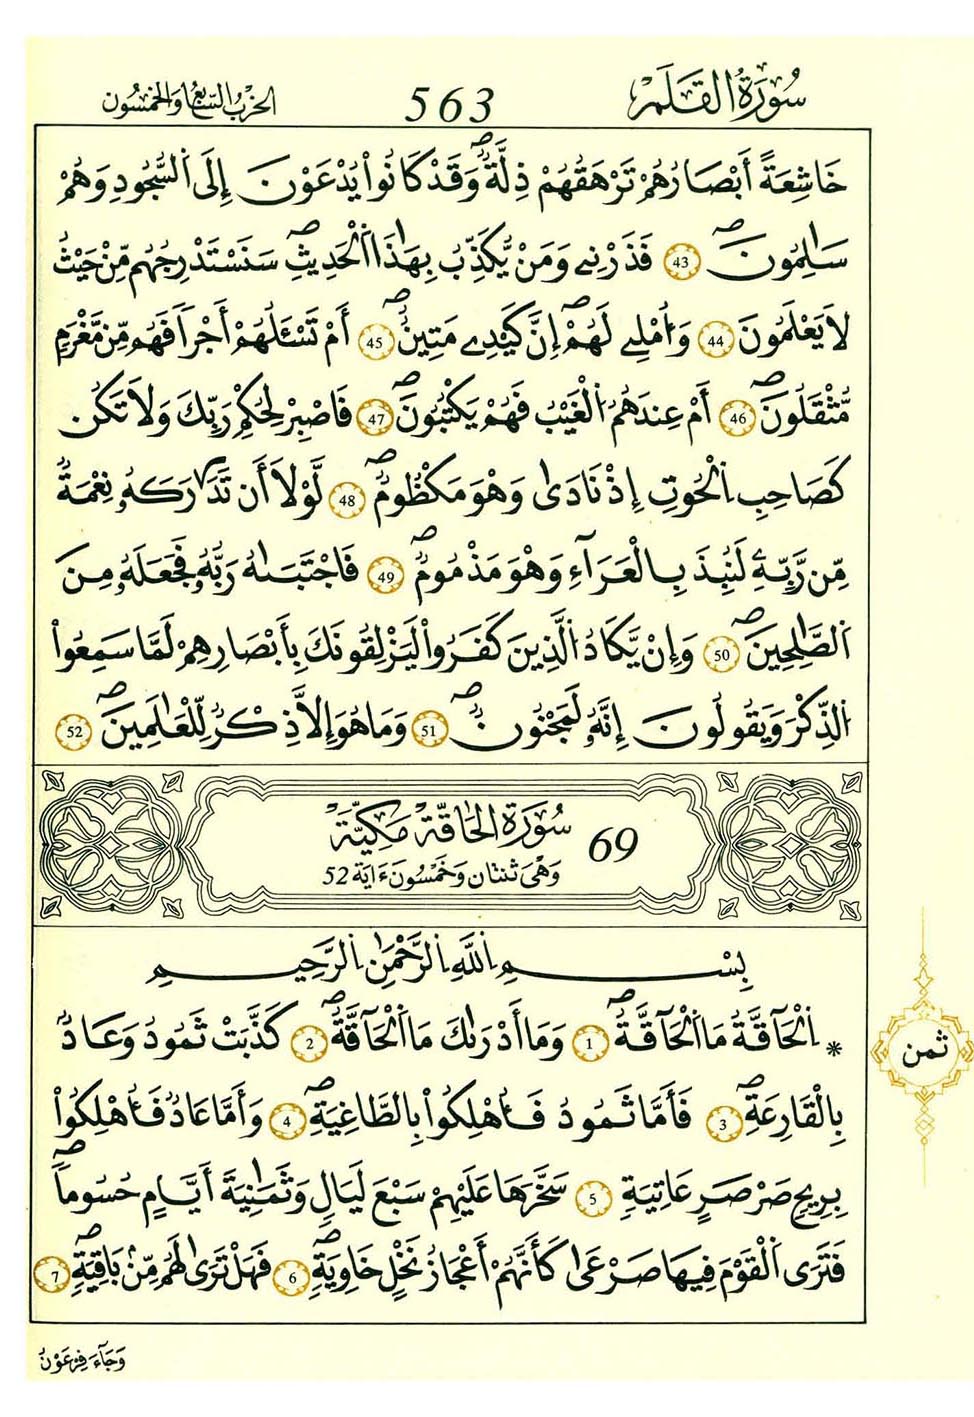 سُورَةُ الْقَلَمِ
563
الحزب السابع والخمسون
خَاشِعَةً أَبْصَارُهُمْ تَرْهَقُهُمْ ذِلَّةٌۖ وَقَدْ كَانُواْ يُدْعَوْنَ إِلَى اَلسُّجُودِ وَهُمْ
سَٰلِمُونَۖ 43 فَذَرْنِے وَمَنْ يُّكَذِّبُ بِهَٰذَا اَلْحَدِيثِۖ سَنَسْتَدْرِجُهُم مِّنْ حَيْثُ
لَا يَعْلَمُونَ 44 وَأُمْلِے لَهُمْۖ إِنَّ كَيْدِے مَتِينٌۖ 45 أَمْ تَسْـَٔلُهُمْ أَجْراٗ فَهُم مِّن مَّغْرَمٖ
مُّثْقَلُونَۖ 46 أَمْ عِندَهُمُ اُلْغَيْبُ فَهُمْ يَكْتُبُونَۖ 47 فَاصْبِرْ لِحُكْمِ رَبِّكَ وَلَا تَكُن
كَصَاحِبِ اِلْحُوتِ إِذْ نَادَىٰ وَهُوَ مَكْظُومٌۖ 48 لَّوْلَا أَن تَدَٰرَكَهُۥ نِعْمَةٌ
مِّن رَّبِّهِۦ لَنُبِذَ بِالْعَرَآءِ وَهُوَ مَذْمُومٌۖ 49 فَاجْتَبَٰهُ رَبُّهُۥ فَجَعَلَهُۥ مِنَ
اَلصَّٰلِحِينَۖ 50 وَإِنْ يَّكَادُ اُلَّذِينَ كَفَرُواْ لَيَزْلِقُونَكَ بِأَبْصَٰرِهِمْ لَمَّا سَمِعُواْ
اُلذِّكْرَ وَيَقُولُونَ إِنَّهُۥ لَمَجْنُونٌۖ 51 وَمَا هُوَ إِلَّا ذِكْرٌ لِّلْعَٰلَمِينَۖ 52
69 سُورَةُ الْحَاقَّةِ مَكِّيَّة
وَهْىَ ثنتان وَخَمْسُونَ ءَايَة 52
بِسْمِ اِللَّهِ اِلرَّحْمَٰنِ اِلرَّحِيمِ
* اِلْحَآقَّةُ مَا اَلْحَآقَّةُۖ 1 وَمَا أَدْرَىٰكَ مَا اَلْحَآقَّةُۖ 2 كَذَّبَتْ ثَمُودُ وَعَادُۢ
بِالْقَارِعَةِۖ 3 فَأَمَّا ثَمُودُ فَأُهْلِكُواْ بِالطَّاغِيَةِۖ 4 وَأَمَّا عَادٌ فَأُهْلِكُواْ
بِرِيحٖ صَرْصَرٍ عَاتِيَةٖ 5 سَخَّرَهَا عَلَيْهِمْ سَبْعَ لَيَالٖ وَثَمَٰنِيَةَ أَيَّامٍ حُسُوماٗۖ
فَتَرَى اَلْقَوْمَ فِيهَا صَرْعَىٰ كَأَنَّهُمْ أَعْجَازُ نَخْلٍ خَاوِيَةٖۖ 6 فَهَلْ تَرَىٰ لَهُم مِّنۢ بَاقِيَةٖۖ 7
ثمن
وَجَآءَ فِرْعَوْنُ